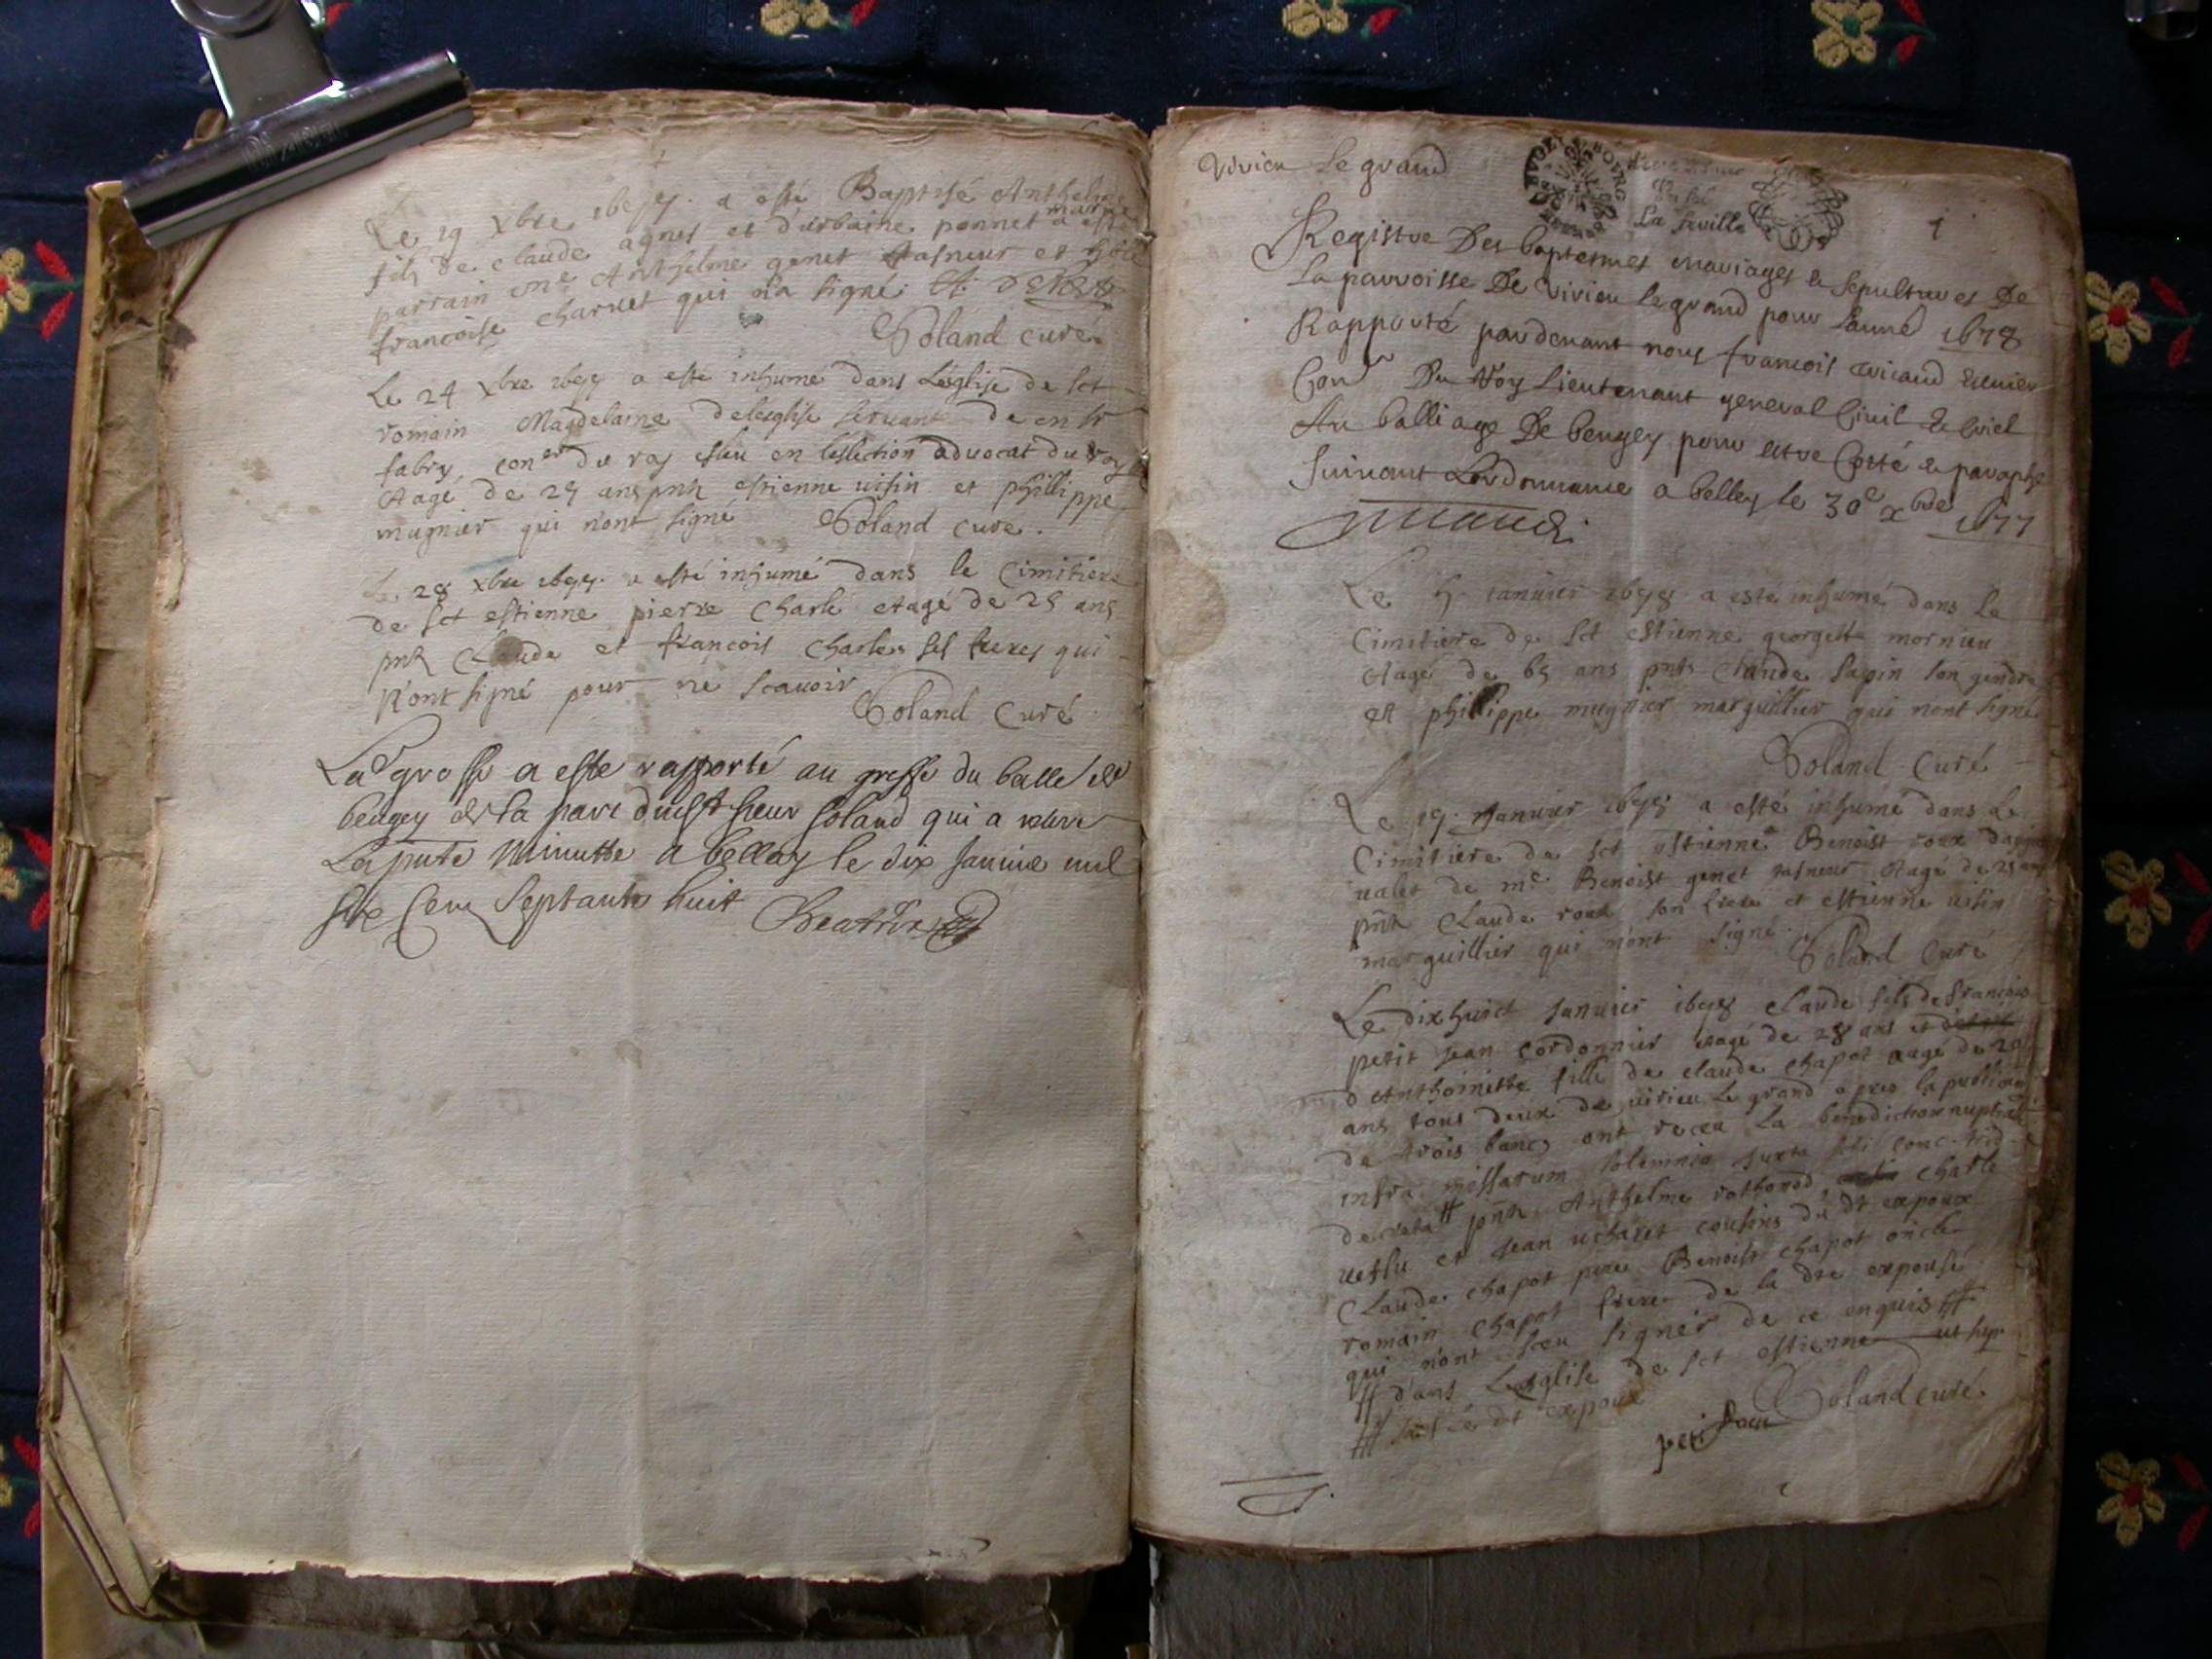 Le 19 Xbre 1677. a esté Baptisé Anthelme
fils de claude agnes et d'urbaine ponnet
parrain me Anthelme genet et
françoise charuet qui n'a signé. A. DENET
Soland curé
Le 24 Xbre 1677 a esté inhumé dans Léglise de sct
romain Magdelaine deléglise seruante de
fabry, coner du roy esleu en leslection aduocat du roy
Aagé de 25 ans pnts estienne uisin et phillippe
mugnier qui n'ont signé Soland curé.
Le 28 Xbre 1677. a esté inhumé dans le Cimitiere
de sct estienne pierre Charle aagé de 25 ans
pnts Claude et françois Charles ses freres qui
n'ont signé pour ne scauoir
Soland Curé
La grosse a esté rapporté au greffe du balle de
beugey de la part dudt sieur soland qui a retiré
La pnte Minutte a belley le dix Janvie mil
size Cens Septante huit
Virieu Le grand
BVGEY BOVRG
La feuille
1
Registre Des baptesmes mariages & sepultures De
La parroisse De Virieu le grand pour Lanné 1678
Rapporté pardevant nous francois Escuier
Conr Du Roy Lieutenant general Civil &
Au balliage De beugey pour estre Cotté & paraphé
suivant Lordonnance a belley le 30e xbre 1677
Le januier 1678 a esté inhumé dans Le
Cimitiere de sct estienne georgette mornieu
Aagé de 65 ans pnts Claude sapin son gendre
et phillippe mugnier marguillier qui n'ont signé
Soland Curé
Le Januier 1678 a esté inhumé dans Le
Cimitiere de sct estienne Benoist roux
ualet de me Benoist genet Aagé de 25 ans
pnts Claude roux son frere et estienne uisin
marguillier qui n'ont signé.
Soland Curé
Le dixhuict Januier 1678 Claude fils de françois
petit jean cordonnier aagé de 28 ans et
d'Anthoinette fille de claude chapot aagé de
ans tous deux de uirieu Le grand apres la publication
de trois bancs ont receu La benediction nuptiale
infra missarum solemnia juxta sti conc. trid
decreta # pnts Anthelme Charle
et jean cousins du dt expoux
Claude chapot pere Benoist chapot oncle
romain chapot frere de la dte expouse
qui n'ont sceu signer de ce enquis #
# dans Leglise de sct estienne ut supr
# sauf Le dt expoux
Soland curé.
petit Jean